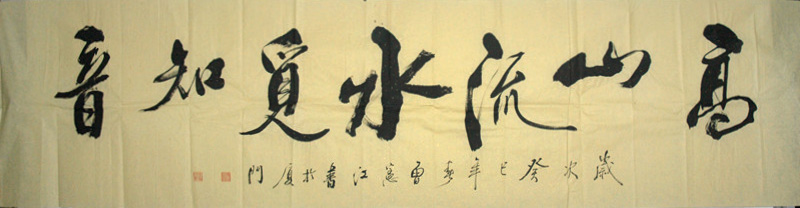 高山流水覓知音
歲次癸巳年春曹憲江書於廈門